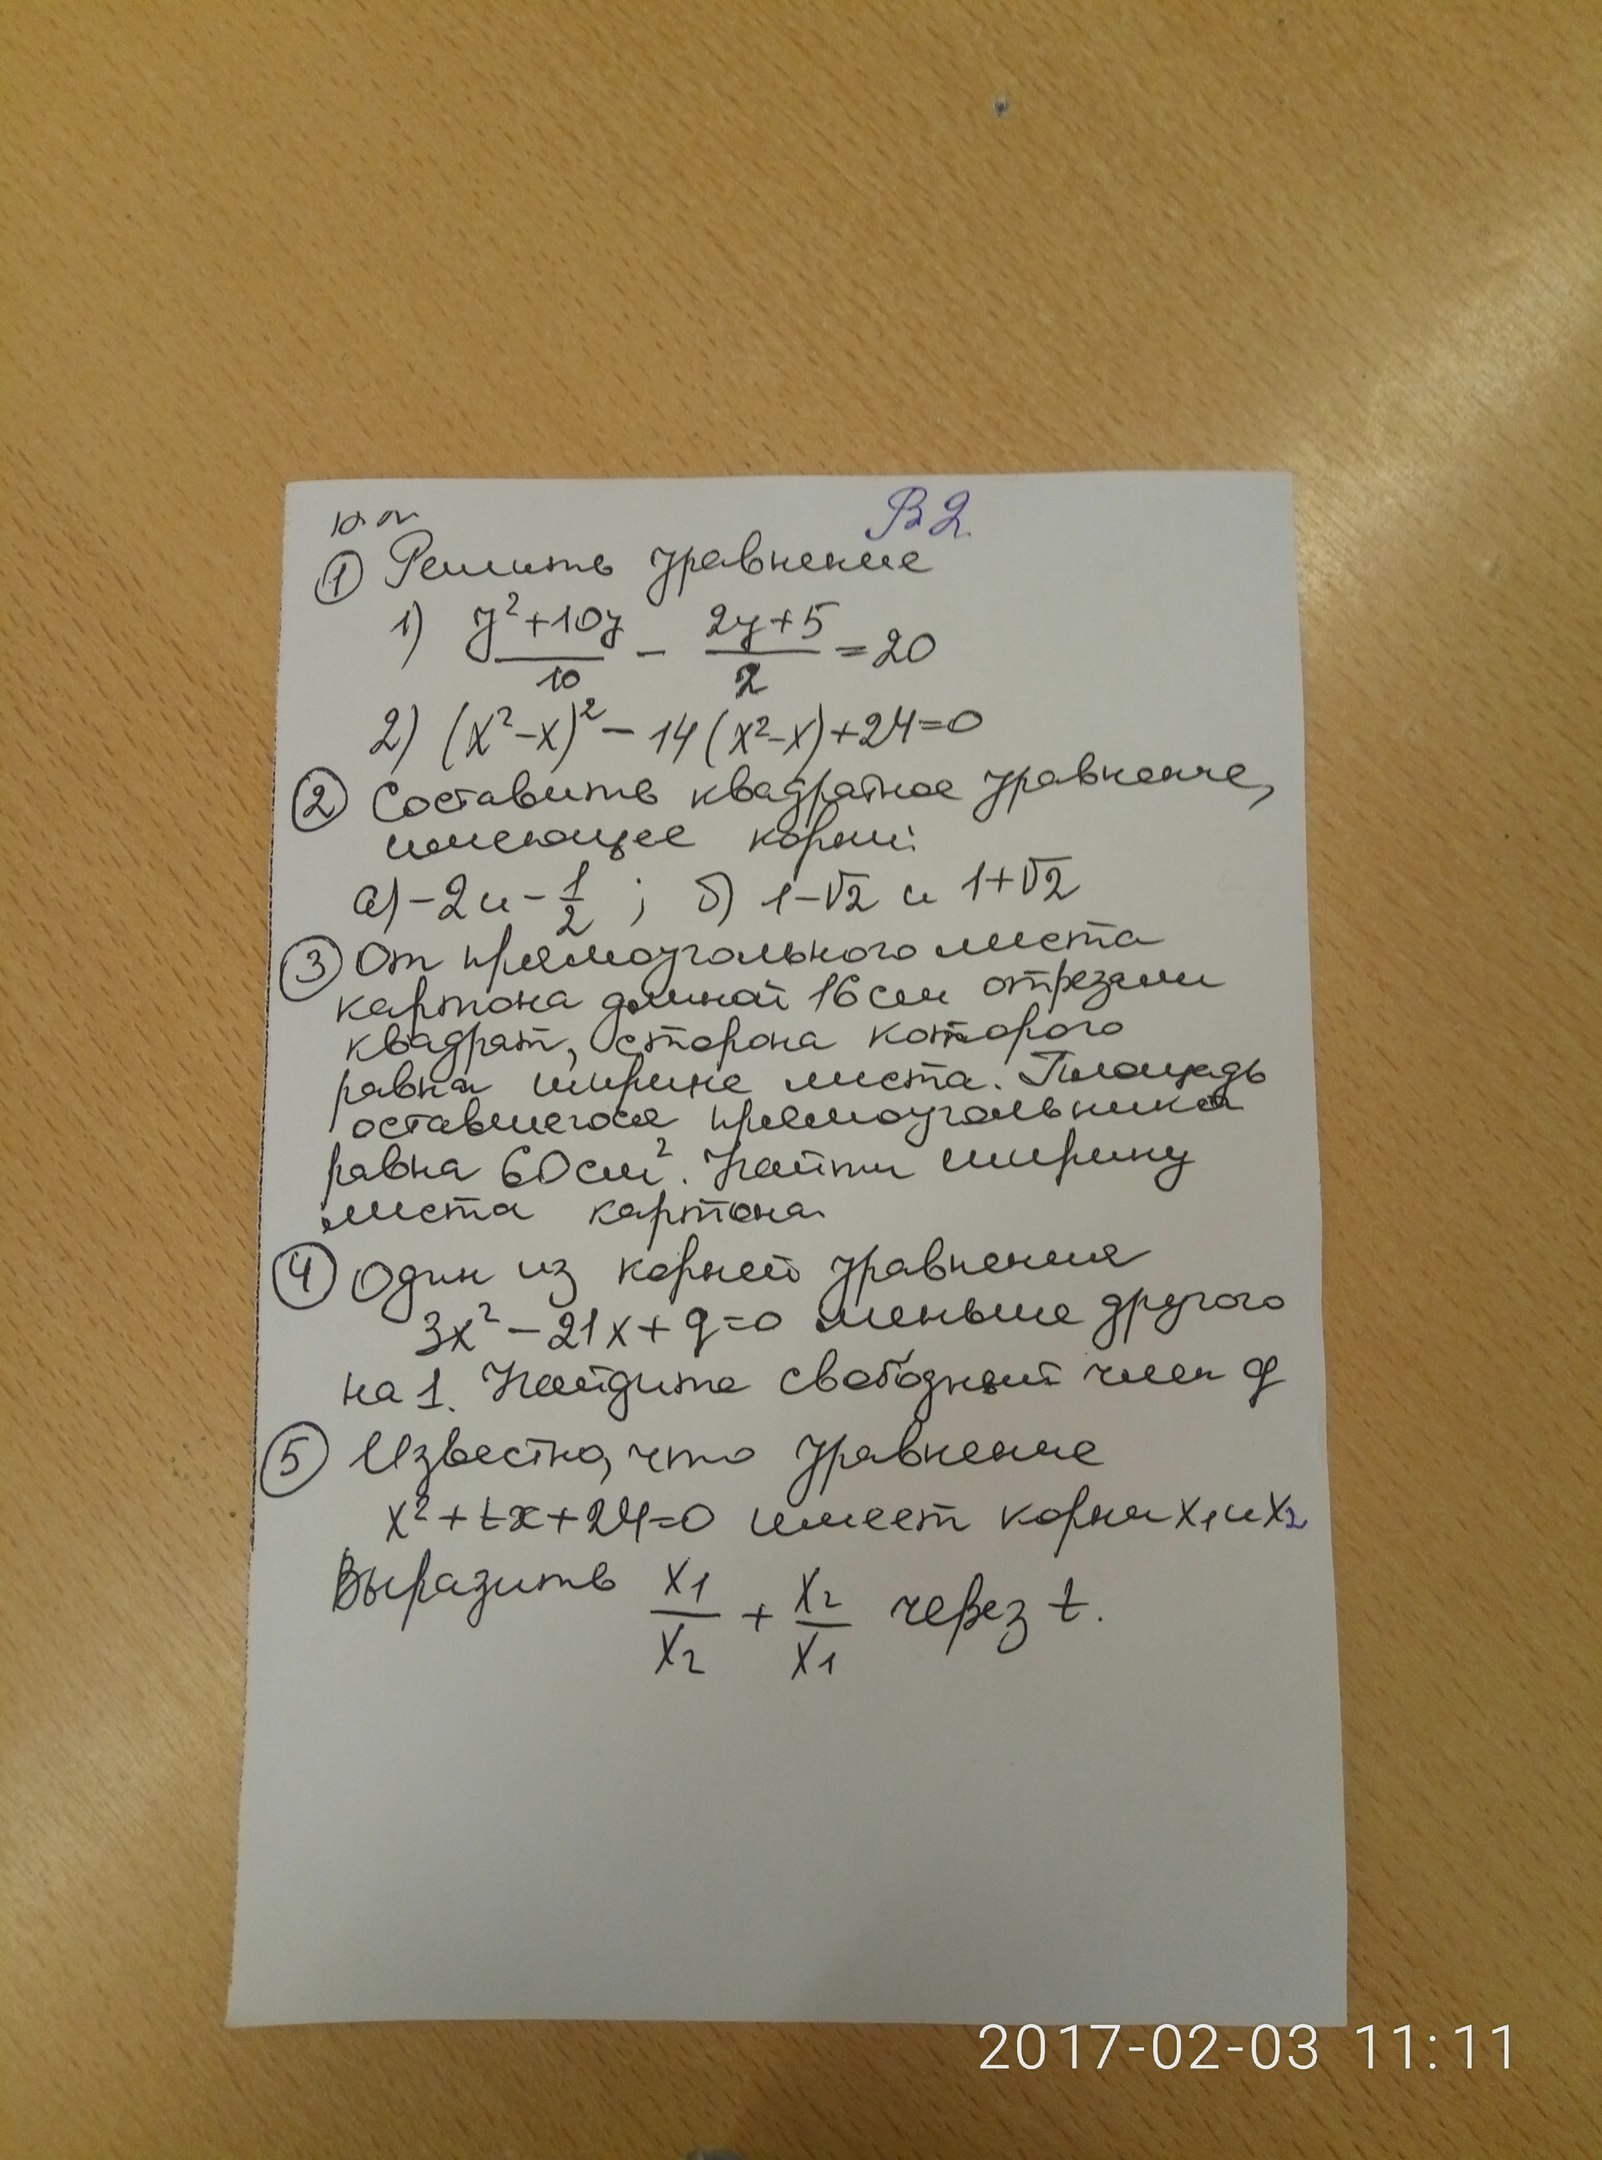 В2
① Решить уравнение
1) (y²+10y)/10 − (2y+5)/2 = 20
2) (x²−x)² − 14(x²−x)+24=0
② Составить квадратное уравнение,
имеющее корни:
а) −2 и −1/2 ; б) 1−√2 и 1+√2
③ От прямоугольного листа
картона длиной 16 см отрезали
квадрат, сторона которого
равна ширине листа. Площадь
оставшегося прямоугольника
равна 60 см². Найти ширину
листа картона.
④ Один из корней уравнения
3x² − 21x + q=0 меньше другого
на 1. Найдите свободный член q
⑤ Известно, что уравнение
x² + tx + 24=0 имеет корни x₁ и x₂
Выразить x₁/x₂ + x₂/x₁ через t.
2017-02-03 11:11